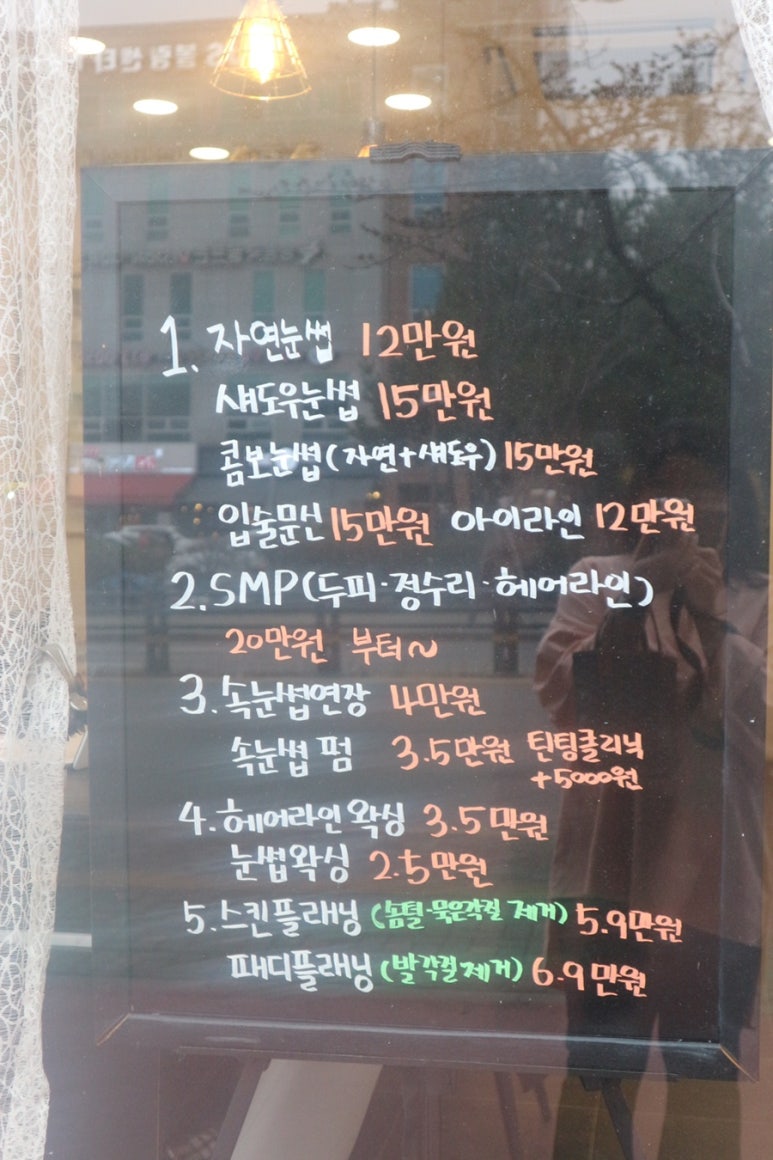 1. 자연눈썹 12만원
섀도우눈썹 15만원
콤보눈썹(자연+섀도우) 15만원
입술문신 15만원 아이라인 12만원
2. SMP(두피·정수리·헤어라인)
20만원 부터~
3. 속눈썹연장 4만원
속눈썹 펌 3.5만원 틴팅클리닉
+5000원
4. 헤어라인 왁싱 3.5만원
눈썹왁싱 2.5만원
5. 스킨플래닝 (솜털·묵은각질 제거) 5.9만원
패디플래닝 (발각질제거) 6.9만원